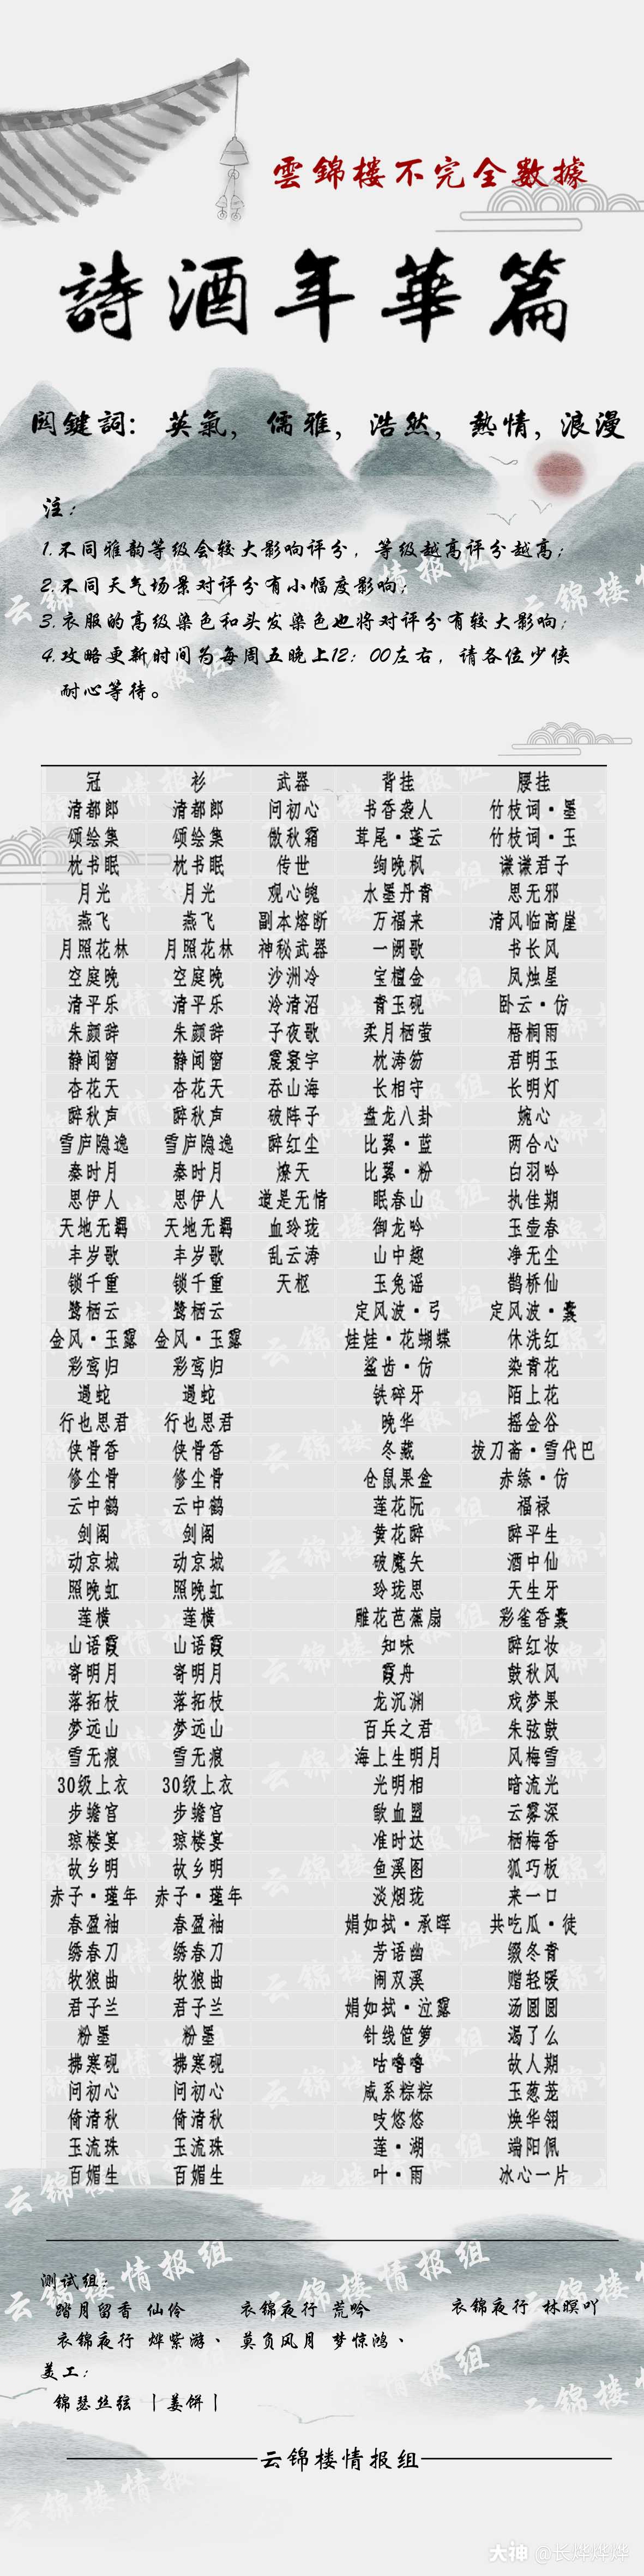 雲錦楼不完全數據
詩酒年華篇
関鍵詞： 英氣， 儒雅， 浩然， 熱情， 浪漫
注：
1.不同雅韵等级会较大影响评分，等级越高评分越高；
2.不同天气场景对评分有小幅度影响；
3.衣服的高级染色和头发染色也将对评分有较大影响；
4.攻略更新时间为每周五晚上12：00左右，请各位少侠
耐心等待。
冠 衫 武器 背挂 腰挂
清都郎 清都郎 问初心 书香袭人 竹枝词·墨
颂绘集 颂绘集 傲秋霜 茸尾·蓬云 竹枝词·玉
枕书眠 枕书眠 传世 绚晚枫 谦谦君子
月光 月光 观心魄 水墨丹青 思无邪
燕飞 燕飞 副本熔断 万福来 清风临高崖
月照花林 月照花林 神秘武器 一阙歌 书长风
空庭晚 空庭晚 沙洲冷 宝檀金 凤烛星
清平乐 清平乐 泠清沼 青玉砚 卧云·仿
朱颜辞 朱颜辞 子夜歌 柔月栖萤 梧桐雨
静闻窗 静闻窗 震寰宇 枕涛笏 君明玉
杏花天 杏花天 吞山海 长相守 长明灯
醉秋声 醉秋声 破阵子 盘龙八卦 婉心
雪庐隐逸 雪庐隐逸 醉红尘 比翼·蓝 两合心
秦时月 秦时月 燎天 比翼·粉 白羽吟
思伊人 思伊人 道是无情 眠春山 执佳期
天地无羁 天地无羁 血玲珑 御龙吟 玉壶春
丰岁歌 丰岁歌 乱云涛 山中趣 净无尘
锁千重 锁千重 天枢 玉兔谣 鹊桥仙
鹭栖云 鹭栖云 定风波·弓 定风波·囊
金风·玉露 金风·玉露 娃娃·花蝴蝶 休洗红
彩鸾归 彩鸾归 鲨齿·仿 染青花
遏蛇 遏蛇 铁碎牙 陌上花
行也思君 行也思君 晚华 摇金谷
侠骨香 侠骨香 冬藏 拔刀斋·雪代巴
修尘骨 修尘骨 仓鼠果盒 赤练·仿
云中鹤 云中鹤 莲花阮 福禄
剑阁 剑阁 黄花醉 醉平生
动京城 动京城 破魔矢 酒中仙
照晚虹 照晚虹 玲珑思 天生牙
莲横 莲横 雕花芭蕉扇 彩雀香囊
山语霞 山语霞 知味 醉红妆
寄明月 寄明月 霞舟 鼓秋风
落拓枝 落拓枝 龙沉渊 戏梦果
梦远山 梦远山 百兵之君 朱弦鼓
雪无痕 雪无痕 海上生明月 风梅雪
30级上衣 30级上衣 光明相 暗流光
步蟾宫 步蟾宫 歃血盟 云雾深
琼楼宴 琼楼宴 准时达 栖梅香
故乡明 故乡明 鱼溪图 狐巧板
赤子·瑾年 赤子·瑾年 淡烟珑 来一口
春盈袖 春盈袖 娟如拭·承晖 共吃瓜·徒
绣春刀 绣春刀 芳语幽 缀冬青
牧狼曲 牧狼曲 闹双溪 赠轻暖
君子兰 君子兰 娟如拭·泣露 汤圆圆
粉墨 粉墨 针线笸箩 渴了么
拂寒砚 拂寒砚 咕噜噜 故人期
问初心 问初心 咸系粽粽 玉葱茏
倚清秋 倚清秋 吱悠悠 焕华翎
玉流珠 玉流珠 莲·湖 端阳佩
百媚生 百媚生 叶·雨 冰心一片
测试组：
踏月留香 仙伶 衣锦夜行 荒吟 衣锦夜行 林暝吖
衣锦夜行 烨紫游、 莫负风月 梦惊鸿、
美工：
锦瑟丝弦 丨姜饼丨
云锦楼情报组
大神 @长烨烨烨